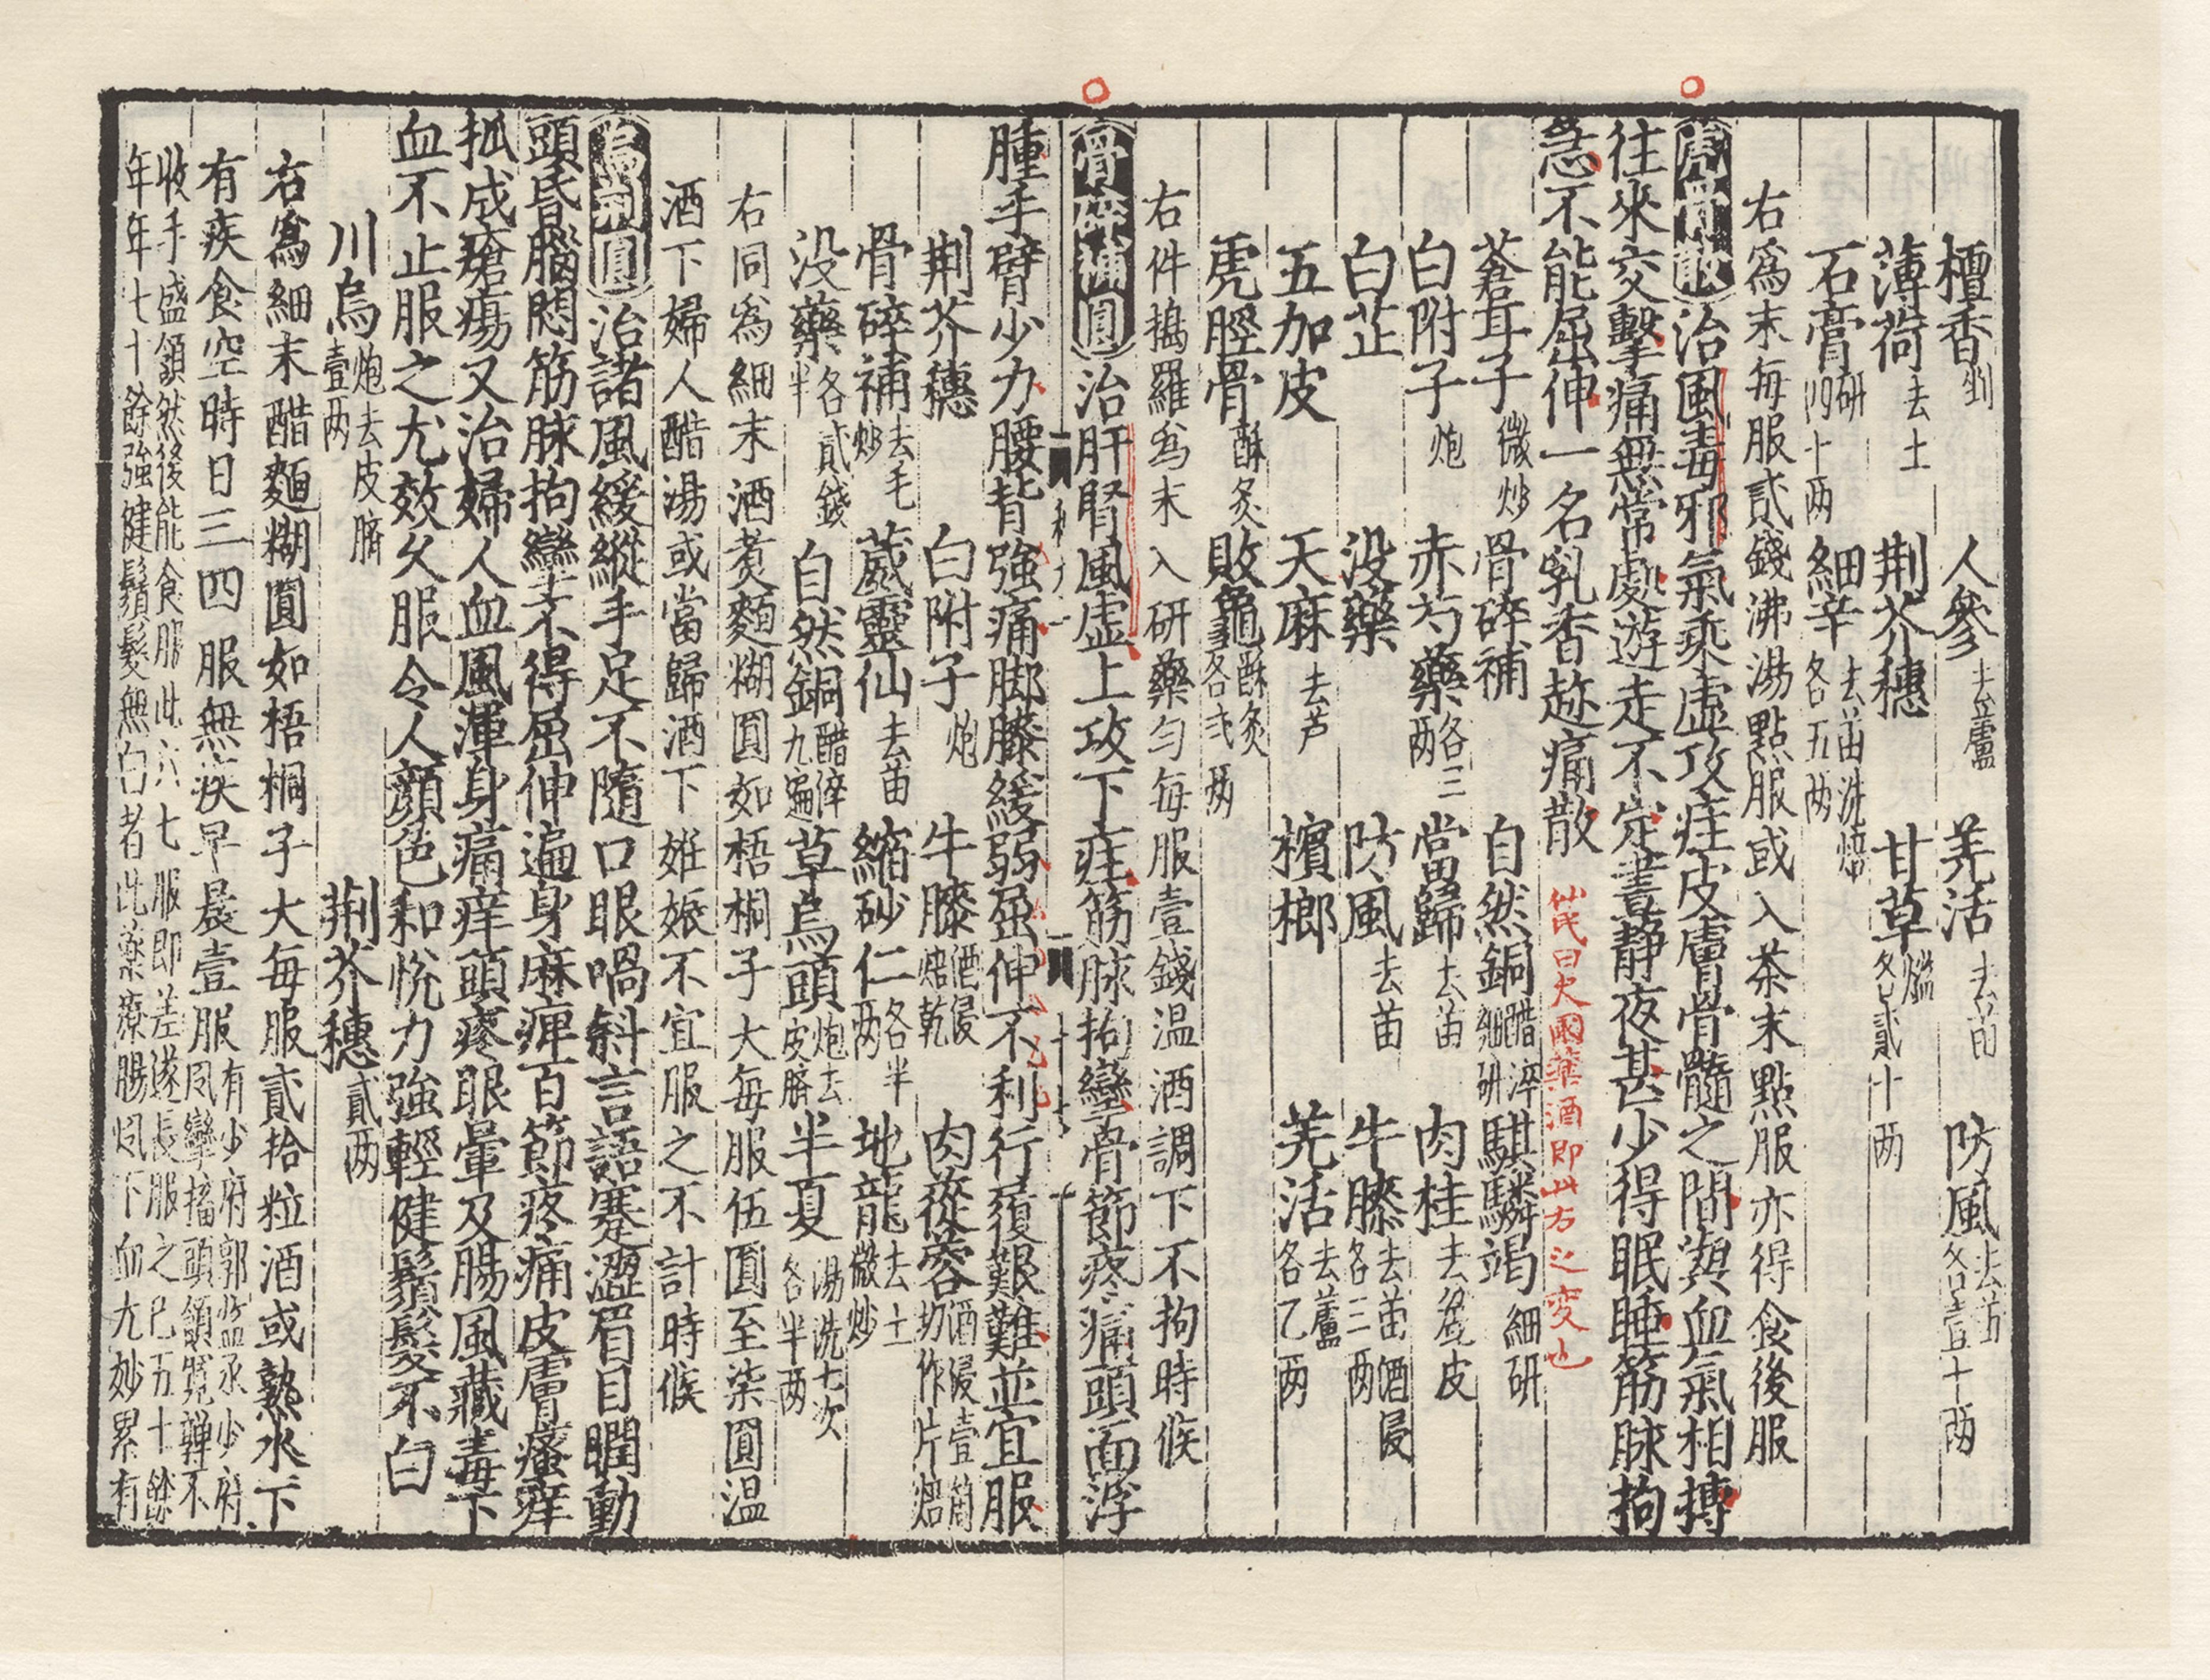 檀香剉 人參去蘆 羌活去苗 防風去苗各壹十两
薄荷去土 荆芥穗 甘草爁各貳十两
石膏研四十两 細辛去苗洗焙各五两
右為末每服貳錢沸湯點服或入茶末點服亦得食後服
虎骨散治風毒邪氣乘虛攻疰皮膚骨髓之間與血氣相摶
往來交擊痛無常處遊走不定晝静夜甚少得眠睡筋脉拘
急不能屈伸一名乳香趂痛散
曰史國藥酒即此方之変也
蒼耳子微炒 骨碎補 自然銅醋淬細研 騏驎竭細研
白附子炮 赤芍藥各三两 當歸去苗 肉桂去麄皮
白芷 没藥 防風去苗 牛膝去苗酒浸各三两
五加皮 天麻去芦 檳榔 羌活去蘆各乙两
虎脛骨酥炙 敗龜酥炙各弍两
右件擣羅為末入研藥匀每服壹錢温酒調下不拘時候
骨碎補圓治肝腎風虛上攻下疰筋脉拘攣骨節疼痛頭面浮
腫手臂少力腰背強痛脚膝緩弱屈伸不利行履艱難並宜服
荆芥穗 白附子炮 牛膝酒浸焙乾 肉蓯蓉酒浸壹宿切作片焙
骨碎補去毛炒 葳靈仙去苗 縮砂仁各半两 地龍去土微炒
没藥各貳錢半 自然銅醋淬九遍 草烏頭炮去皮臍 半夏湯洗七次各半两
右同為細末酒煑麵糊圓如梧桐子大每服伍圓至柒圓温
酒下婦人醋湯或當歸酒下姙娠不宜服之不計時候
烏荆圓治諸風緩縱手足不隨口眼喎斜言語蹇澀眉目瞤動
頭昏腦悶筋脉拘攣不得屈伸遍身麻痺百節疼痛皮膚瘙痒
抓成瘡瘍又治婦人血風渾身痛痒頭疼眼暈及腸風藏毒下
血不止服之尤效久服令人顏色和悅力強輕健鬚髮不白
川烏炮去皮臍壹两 荆芥穗貳两
右為細末醋麵糊圓如梧桐子大每服貳拾粒酒或熟水下
有疾食空時日三四服無疾早晨壹服有少府郭監丞少府風攣搐頭頷寬嚲不
收手盛頷然後能食服此六七服即差遂長服之已五十餘
年年七十餘強健鬚髮無白者此藥療腸風下血尤妙累有